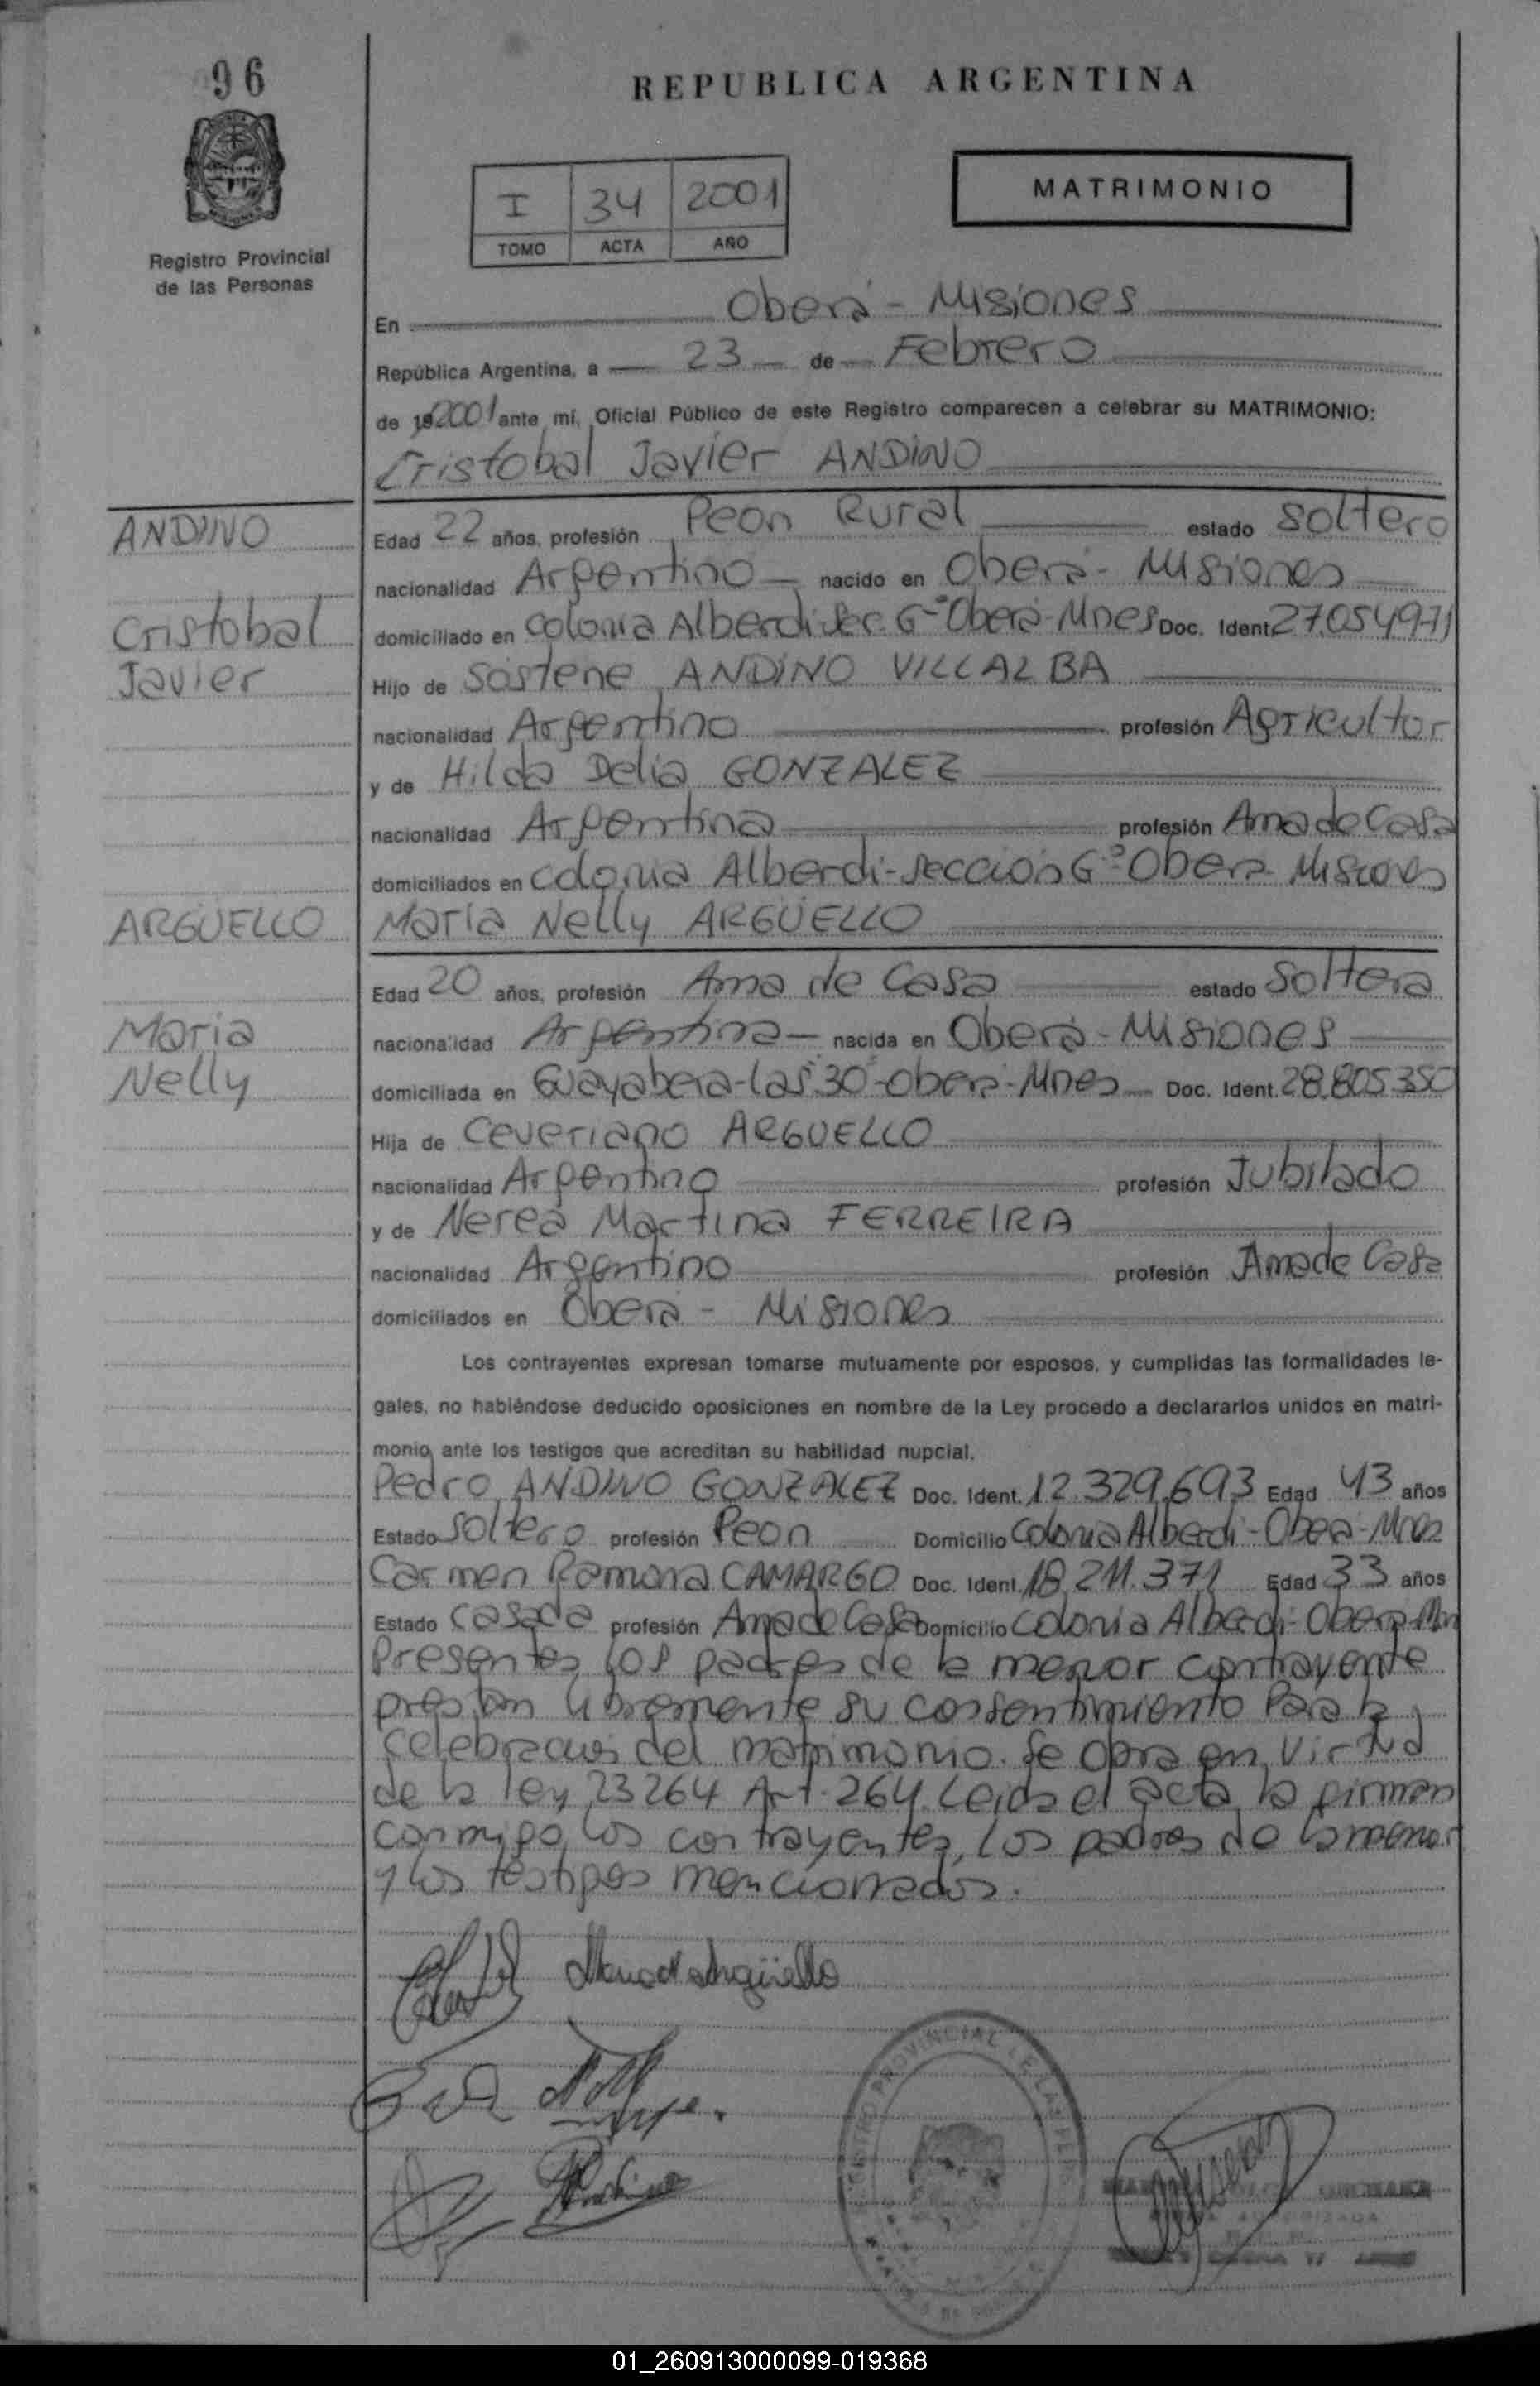 96
REPUBLICA ARGENTINA
I 34 2001
TOMO ACTA AÑO
MATRIMONIO
Registro Provincial
de las Personas
En Oberá - Misiones
República Argentina, a 23 de Febrero
de 192001 ante mí, Oficial Público de este Registro comparecen a celebrar su MATRIMONIO:
Cristobal Javier ANDINO
ANDINO
Cristobal
Javier
Edad 22 años, profesión Peon Rural estado Soltero
nacionalidad Argentino nacido en Oberá - Misiones
domiciliado en Colonia Alberdi Sec. 6ª Oberá - Mnes Doc. Ident. 27.054.971
Hijo de Sostene ANDINO VILLALBA
nacionalidad Argentino profesión Agricultor
y de Hilda Delia GONZALEZ
nacionalidad Argentina profesión Ama de Casa
domiciliados en Colonia Alberdi - Sección 6ª Oberá - Misiones
ARGÜELLO
Maria Nelly ARGÜELLO
Maria
Nelly
Edad 20 años, profesión Ama de Casa estado Soltera
nacionalidad Argentina nacida en Oberá - Misiones
domiciliada en Guayabera - Las 30 - Oberá - Mnes Doc. Ident. 28.805.350
Hija de Ceveriano ARGUELLO
nacionalidad Argentino profesión Jubilado
y de Nerea Martina FERREIRA
nacionalidad Argentino profesión Ama de Casa
domiciliados en Oberá - Misiones
Los contrayentes expresan tomarse mutuamente por esposos, y cumplidas las formalidades le-
gales, no habiéndose deducido oposiciones en nombre de la Ley procedo a declararlos unidos en matri-
monio ante los testigos que acreditan su habilidad nupcial.
Pedro ANDINO GONZALEZ Doc. Ident. 12.329.693 Edad 43 años
Estado Soltero profesión Peon Domicilio Colonia Alberdi - Oberá - Mnes
Carmen Ramona CAMARGO Doc. Ident. 18.211.371 Edad 33 años
Estado Casada profesión Ama de Casa Domicilio Colonia Alberdi - Oberá - Mn
Presentes los padres de la menor contrayente
prestan libremente su consentimiento para la
celebracion del matrimonio. Se obra en virtud
de la ley 23264 Art. 264. Leida el acta la firman
conmigo los contrayentes, los padres de la menor
y los testigos mencionados.
Maria N Argüello
REGISTRO PROVINCIAL DE LAS PERS
01_260913000099-019368